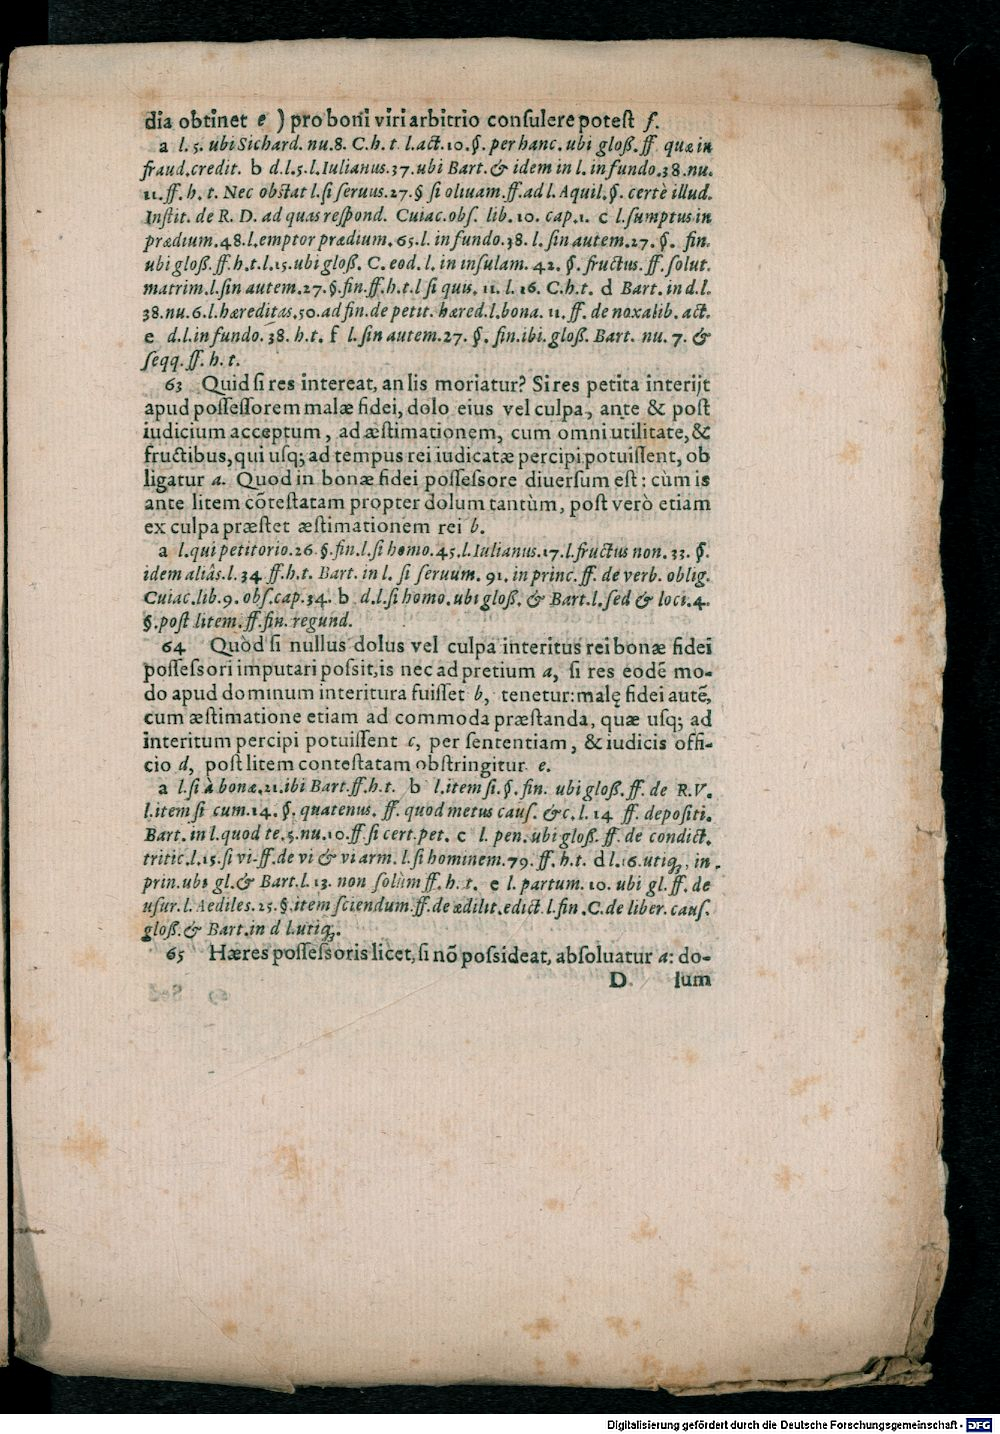 dia obtinet e ) pro boni viri arbitrio conſulere poteſt f.
a l. 5. ubi Sichard. nu. 8. C. h. t. l. act. 10. §. per hanc. ubi gloß. ff. quæ in
fraud. credit. b d. l. 5. l. Iulianus. 37. ubi Bart. & idem in l. in fundo. 38. nu.
11. ff. h. t. Nec obſtat l. ſi ſeruus. 27. § ſi oliuam. ff. ad l. Aquil. §. certè illud.
Inſtit. de R. D. ad quas reſpond. Cuiac. obſ. lib. 10. cap. 1. c l. ſumptus in
prædium. 48. l. emptor prædium. 65. l. in fundo. 38. l. ſin autem. 27. §. fin.
ubi gloß. ff. h. t. l. 15. ubi gloß. C. eod. l. in inſulam. 42. §. fructus. ff. ſolut.
matrim. l. ſin autem. 27. §. fin. ff. h. t. l ſi quis. 11. l. 16. C. h. t. d Bart. in d. l.
38. nu. 6. l. hæreditas. 50. ad fin. de petit. hæred. l. bona. 11. ff. de noxalib. act.
e d. l. in fundo. 38. h. t. f l. ſin autem. 27. §. fin. ibi. gloß. Bart. nu. 7. &
ſeqq. ff. h. t.
63 Quid ſi res intereat, an lis moriatur? Si res petita interijt
apud poſſeſſorem malæ fidei, dolo eius vel culpa, ante & poſt
iudicium acceptum, ad æſtimationem, cum omni utilitate, &
fructibus, qui uſq; ad tempus rei iudicatæ percipi potuiſſent, ob
ligatur a. Quod in bonæ fidei poſſeſsore diuerſum eſt: cùm is
ante litem cõteſtatam propter dolum tantùm, poſt verò etiam
ex culpa præſtet æſtimationem rei b.
a l. qui petitorio. 26 §. fin. l. ſi homo. 45. l. Iulianus. 17. l. fructus non. 33. §.
idem aliâs. l. 34 ff. h. t. Bart. in l. ſi ſeruum. 91. in princ. ff. de verb. oblig.
Cuiac. lib. 9. obſ. cap. 34. b d. l. ſi homo. ubi gloß. & Bart. l. ſed & loci. 4.
§. poſt litem. ff. fin. regund.
64 Quòd ſi nullus dolus vel culpa interitus rei bonæ fidei
poſſeſsori imputari poſsit, is nec ad pretium a, ſi res eodẽ mo-
do apud dominum interitura fuiſſet b, tenetur: malę fidei autẽ,
cum æſtimatione etiam ad commoda præſtanda, quæ uſq; ad
interitum percipi potuiſſent c, per ſententiam, & iudicis offi-
cio d, poſt litem conteſtatam obſtringitur e.
a l. ſi à bonæ. 21. ibi Bart. ff. h. t. b l. item ſi. §. fin. ubi gloß. ff. de R. V.
l. item ſi cum. 14. §. quatenus. ff. quod metus cauſ. &c. l. 14 ff. depoſiti.
Bart. in l. quod te. 5. nu. 10. ff. ſi cert. pet. c l. pen. ubi gloß. ff. de condict.
tritic. l. 15. ſi vi. ff. de vi & vi arm. l. ſi hominem. 79. ff. h. t. d l. 16. utiq;. in
prin. ubi gl. & Bart. l. 13. non ſolùm ff. h. t. e l. partum. 10. ubi gl. ff. de
uſur. l. Aediles. 25. §. item ſciendum. ff. de ædilit. edict. l. fin. C. de liber. cauſ.
gloß. & Bart. in d l. utiq;.
65 Hæres poſſeſsoris licet, ſi nõ poſsideat, abſoluatur a: do-
D lum
Digitalisierung gefördert durch die Deutsche Forschungsgemeinschaft - DFG